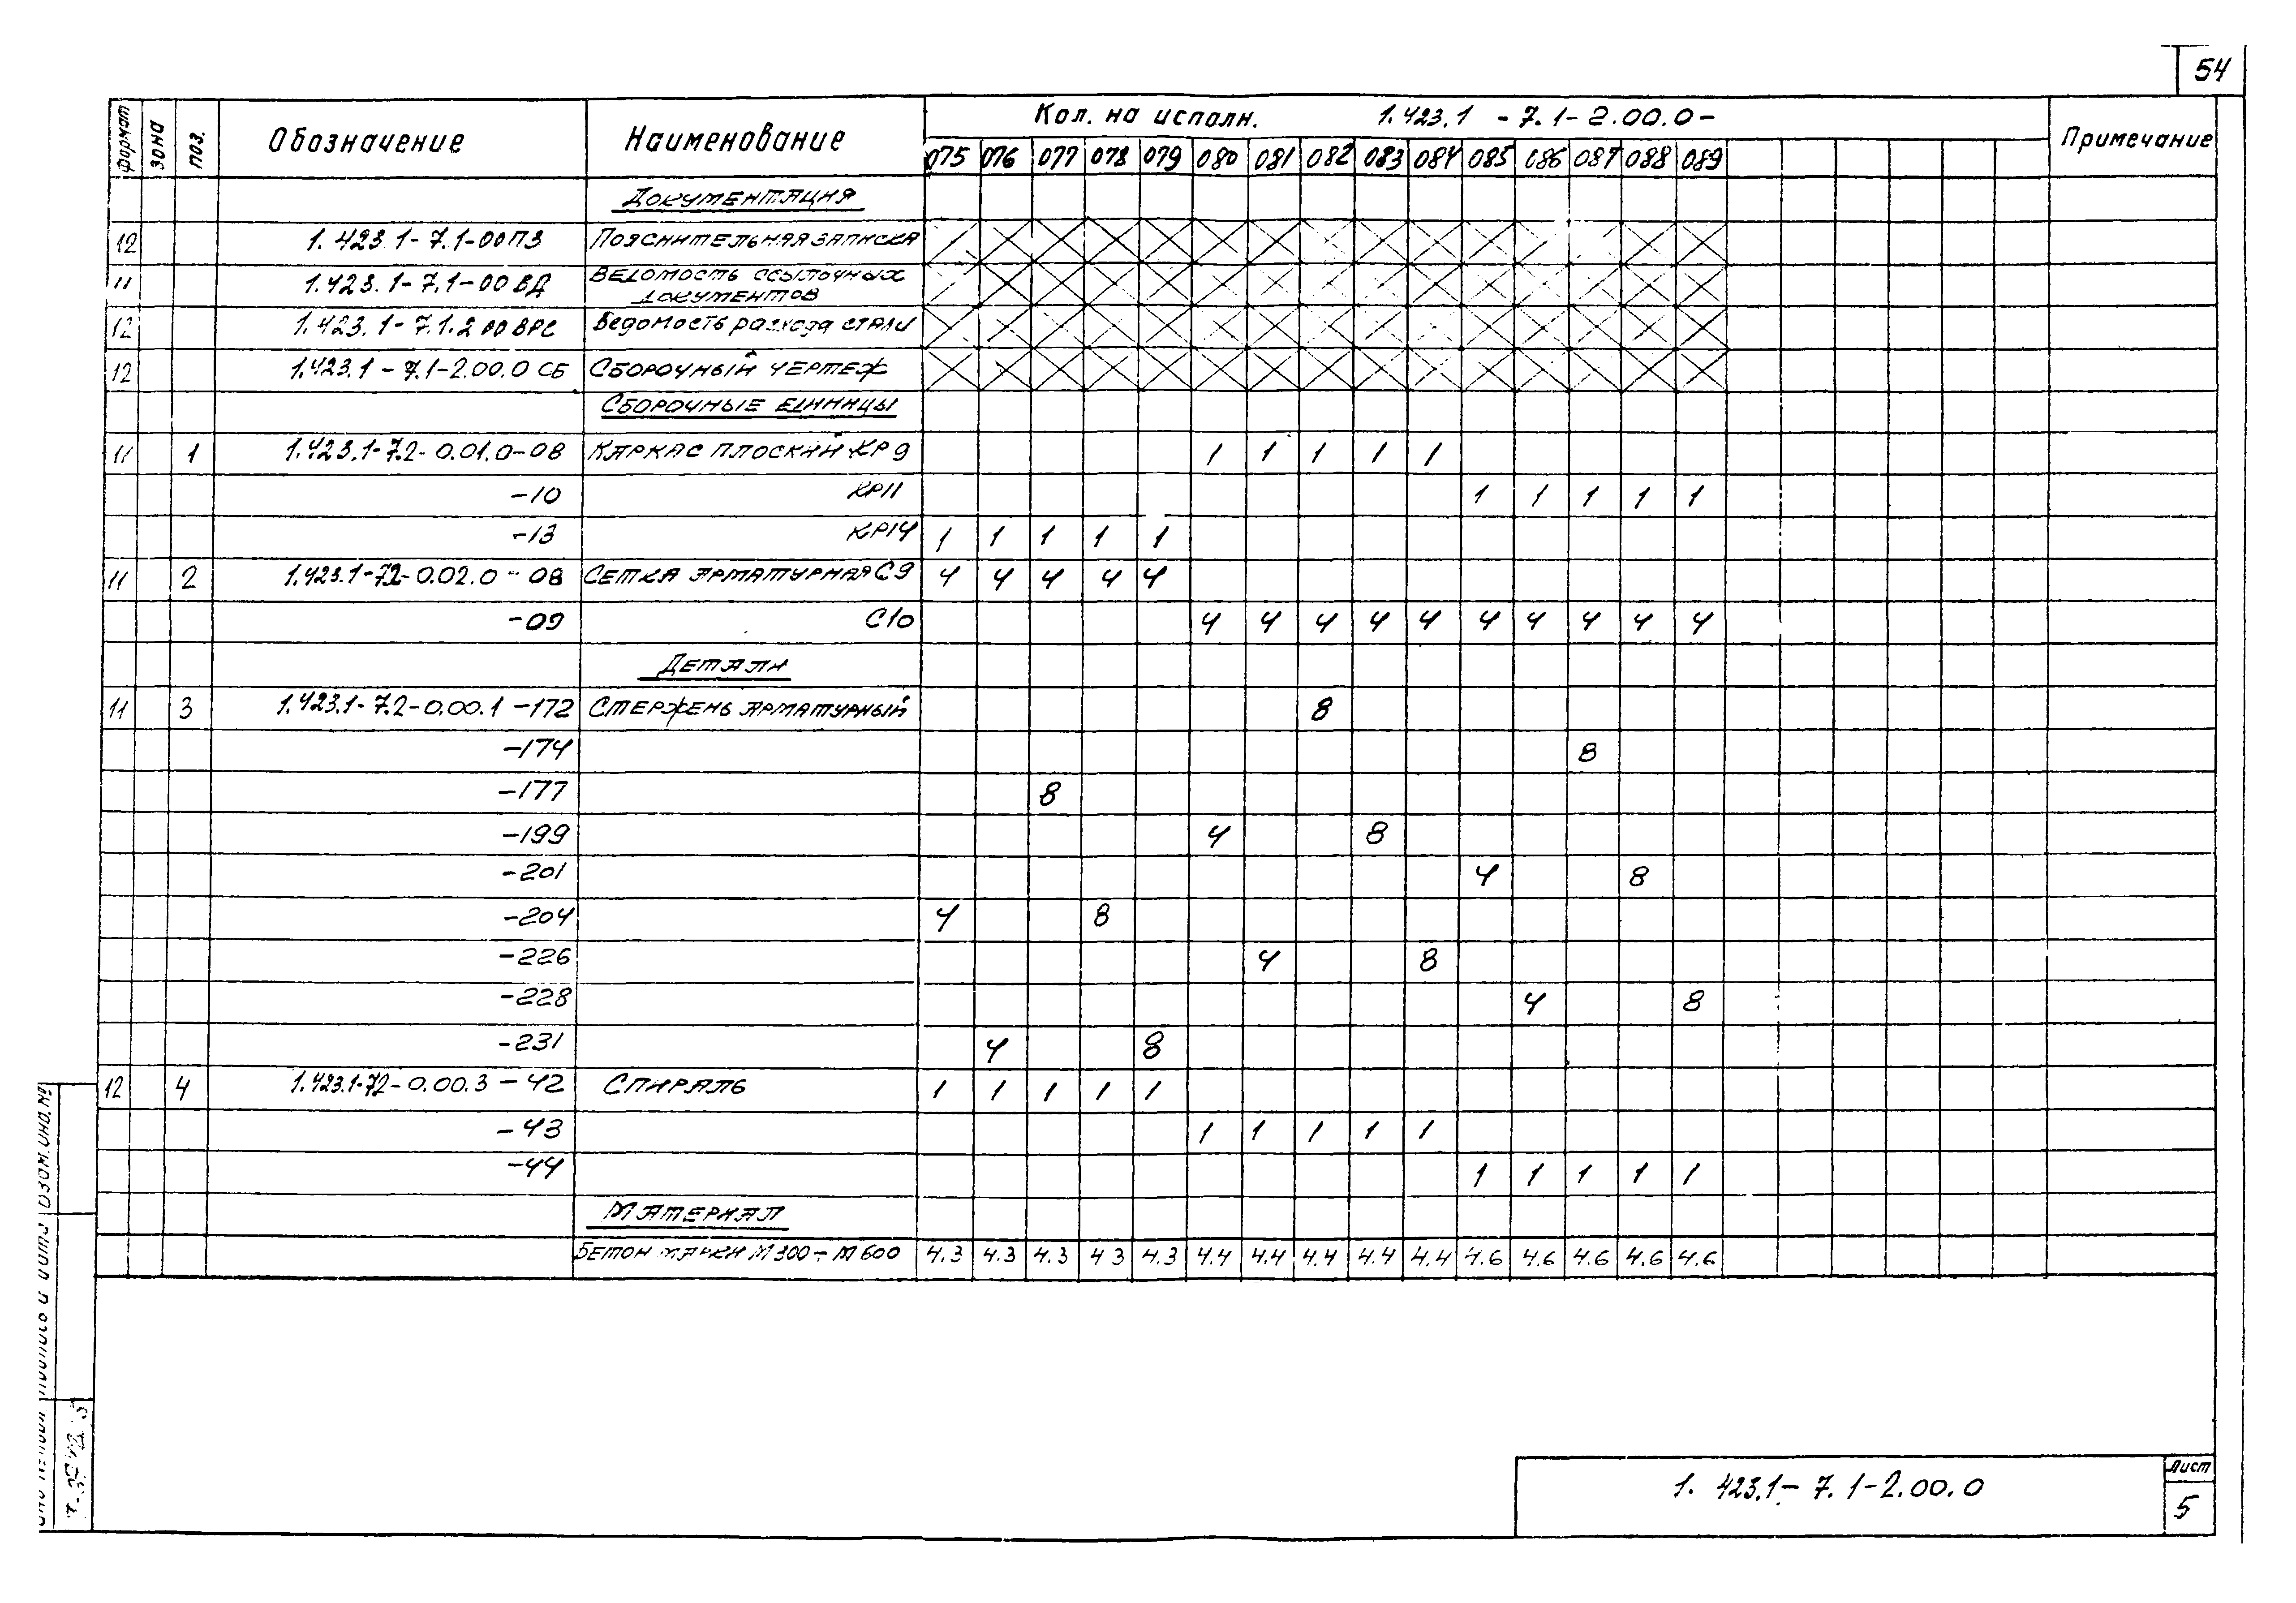 54
формат зона поз. Обозначение Наименование Кол. на исполн. 1.423.1 - 7.1- 2.00.0- Примечание
075 076 077 078 079 080 081 082 083 084 085 086 087 088 089
Документация
12 1.423.1-7.1-00ПЗ Пояснительная записка
11 1.423.1-7.1-00 ВД Ведомость ссылочных
документов
12 1.423.1-7.1.2 00 ВРС Ведомость расхода стали
12 1.423.1-7.1-2.00.0 СБ Сборочный чертеж
Сборочные единицы
11 1 1.423.1-7.2-0.01.0-08 Каркас плоский КР9 1 1 1 1 1
-10 КР11 1 1 1 1 1
-13 КР14 1 1 1 1 1
11 2 1.423.1-7.2-0.02.0-08 Сетка арматурная С9 4 4 4 4 4
-09 С10 4 4 4 4 4 4 4 4 4 4
Детали
11 3 1.423.1-7.2-0.00.1-172 Стержень арматурный 8
-174 8
-177 8
-199 4 8
-201 4 8
-204 4 8
-226 4 8
-228 4 8
-231 4 8
12 4 1.423.1-7.2-0.00.3-42 Спираль 1 1 1 1 1
-43 1 1 1 1 1
-44 1 1 1 1 1
Материал
Бетон марки М300-М600 4.3 4.3 4.3 4.3 4.3 4.4 4.4 4.4 4.4 4.4 4.6 4.6 4.6 4.6 4.6
1.423.1-7.1-2.00.0
Лист
5